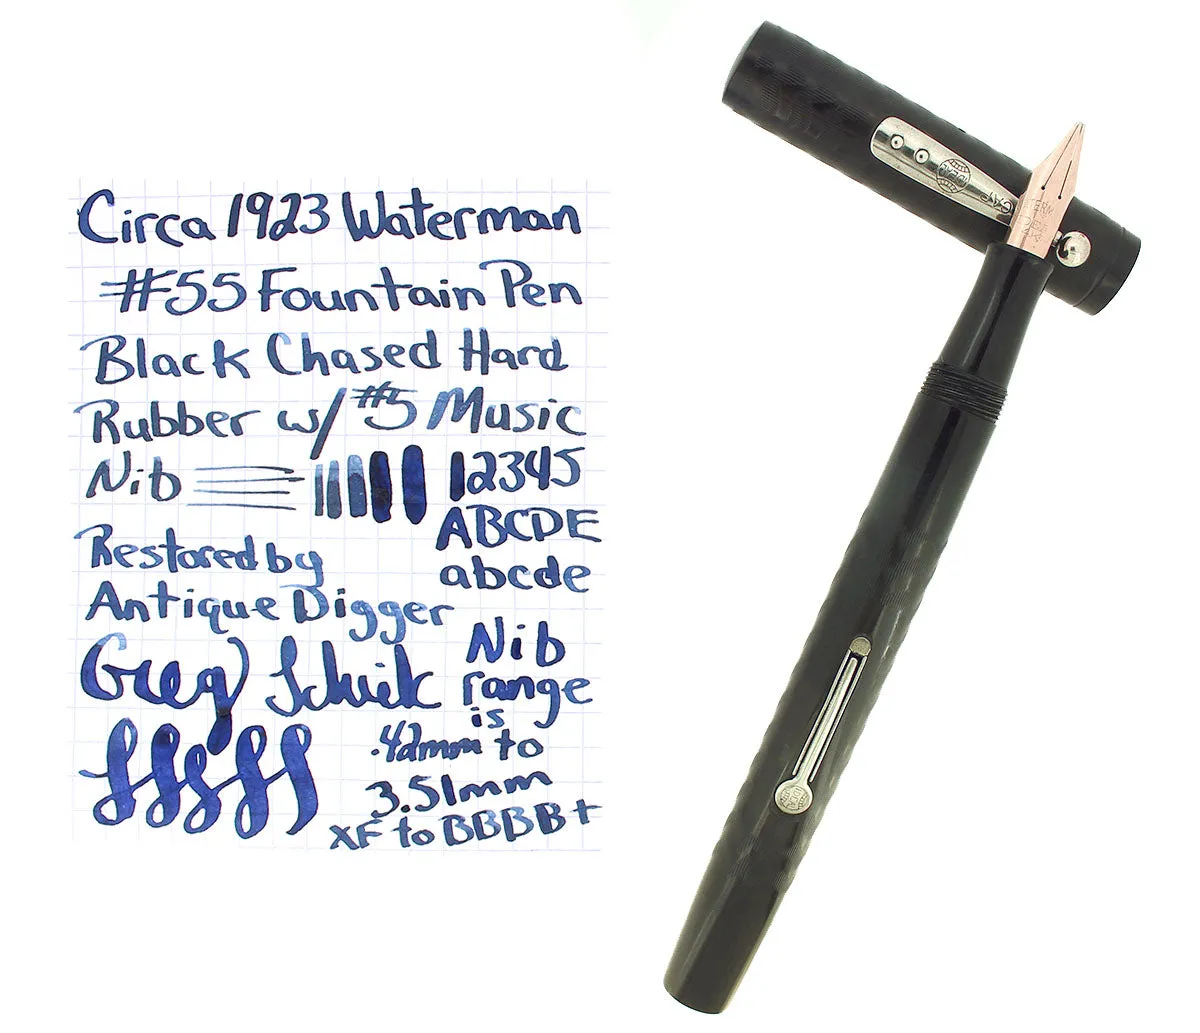 Circa 1923 Waterman
#55 Fountain Pen
Black Chased Hard
Rubber w/ #5 Music
Nib
12345
ABCDE
abcde
Restored by
Antique Digger
Nib
range
is
.42mm to
3.51mm
XF to BBBB+
IDEAL
IDEAL